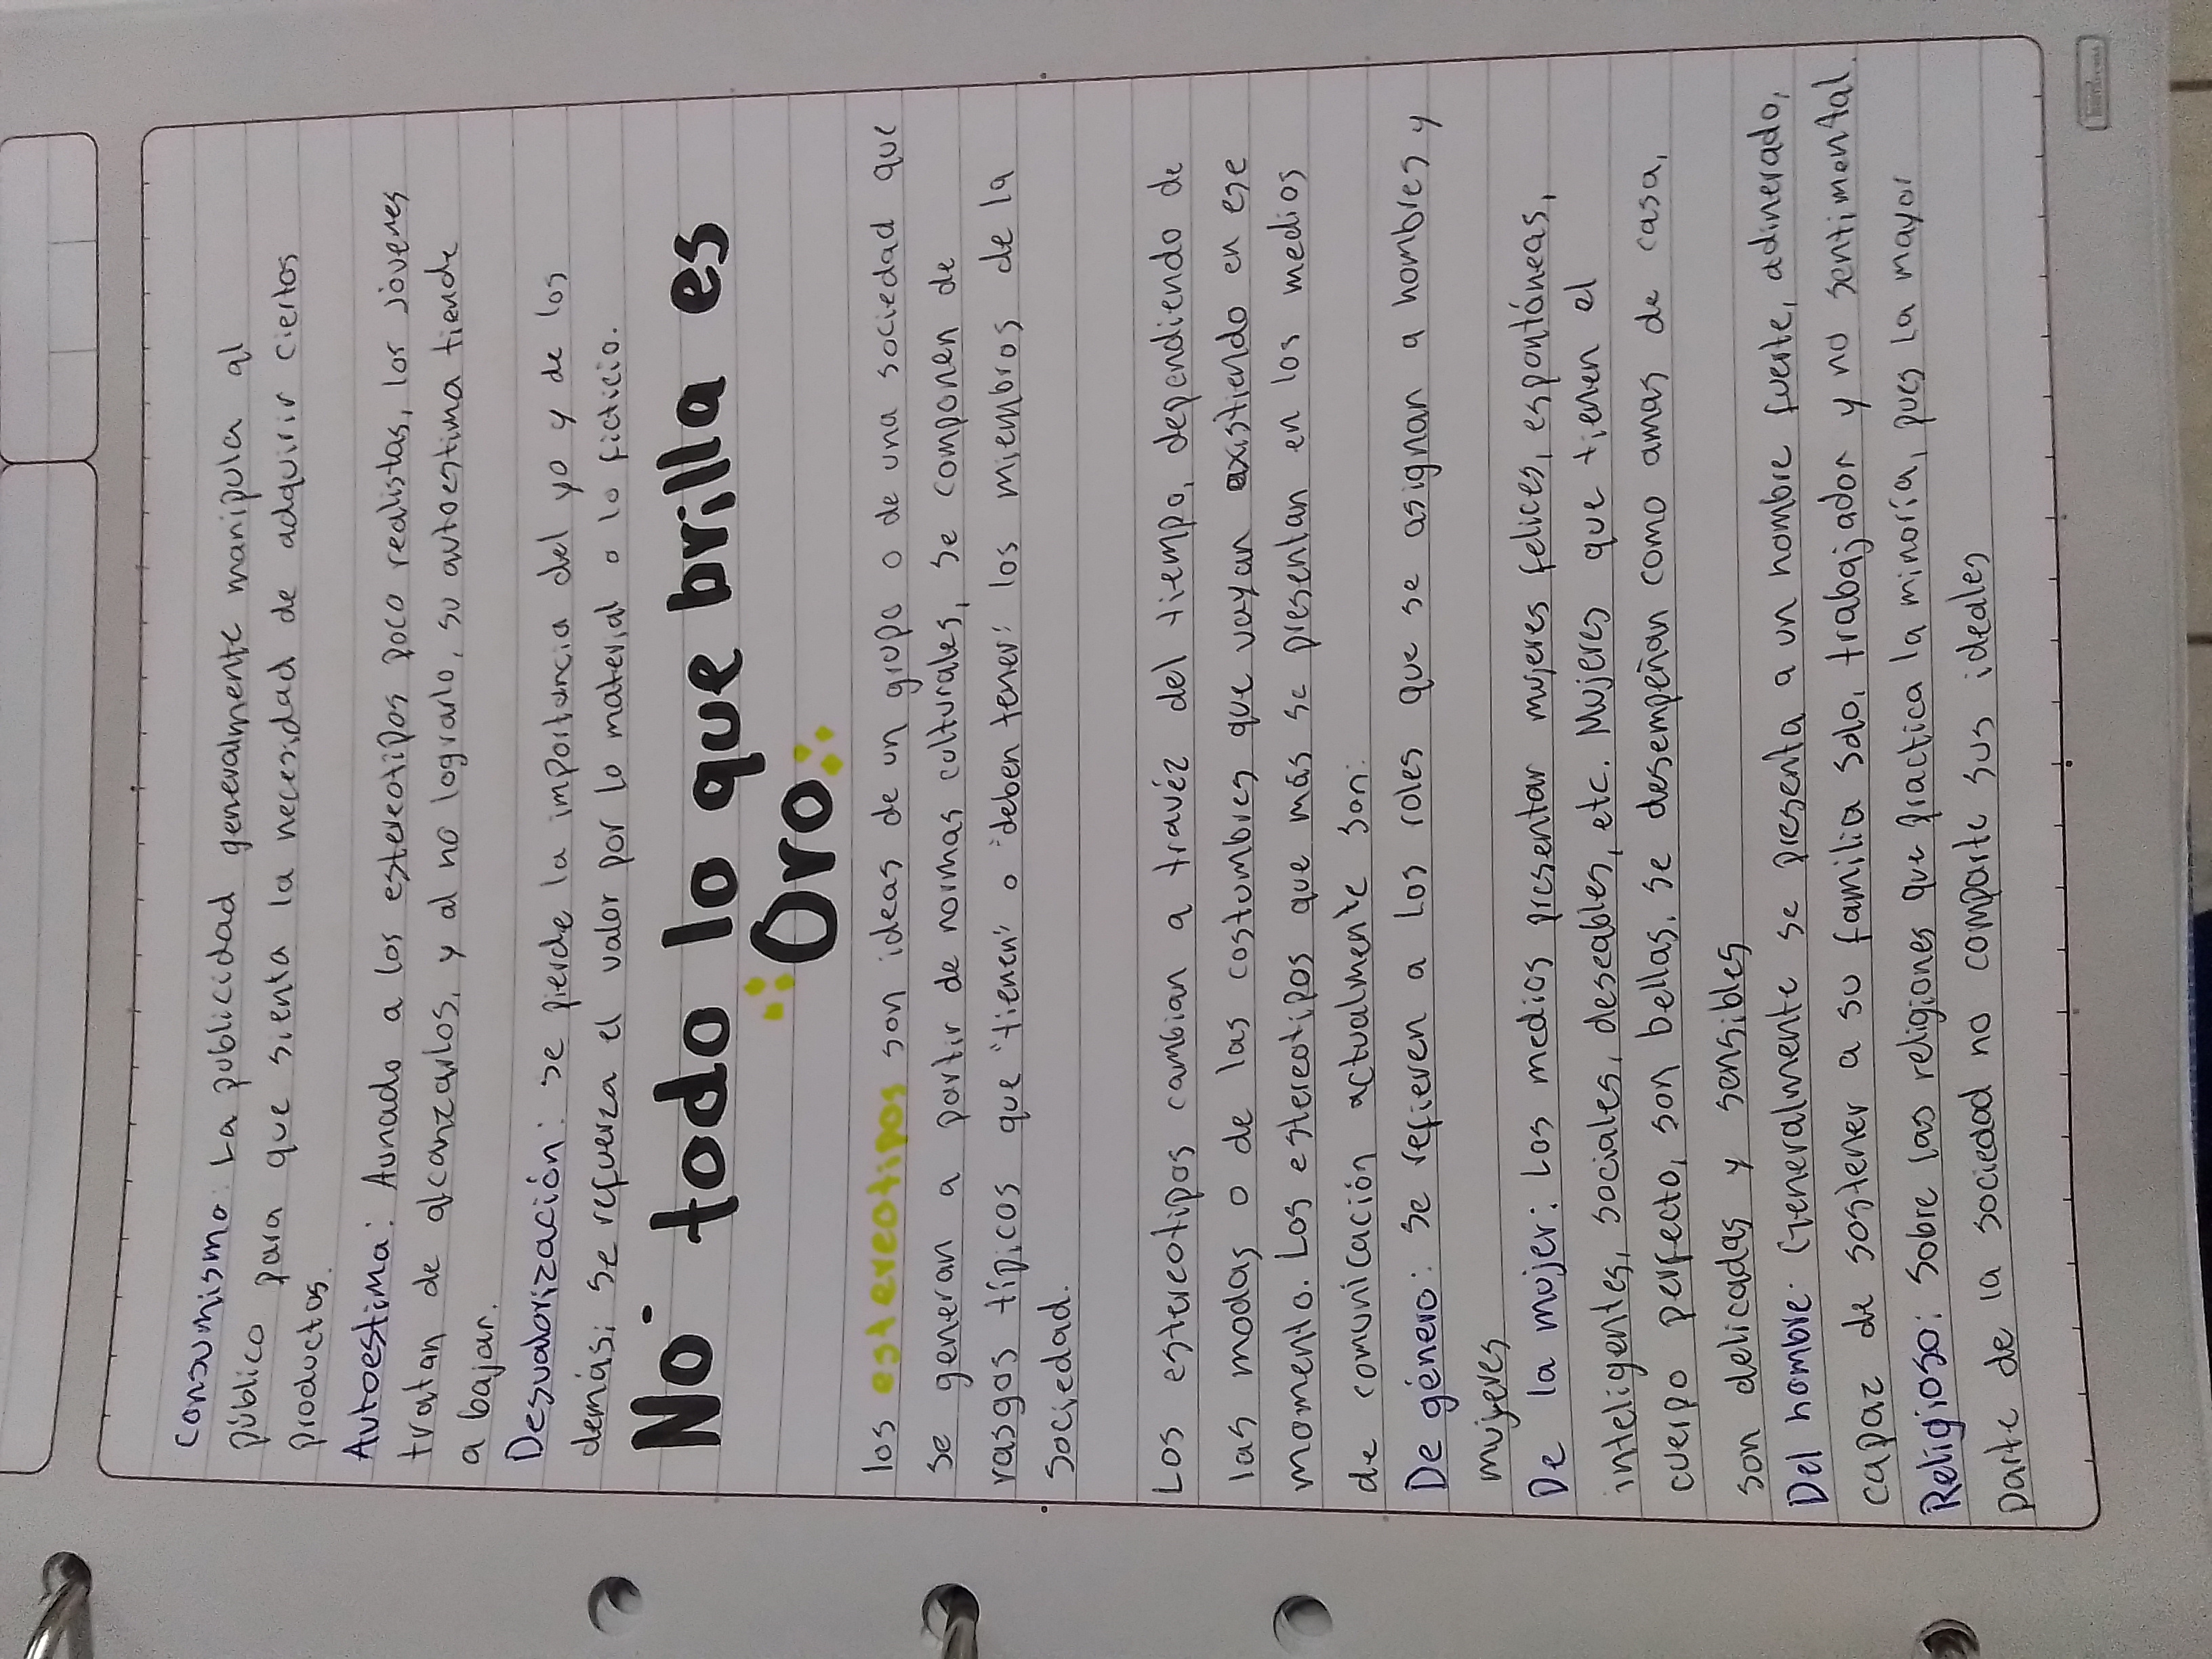 Consumismo: La publicidad generalmente manipula al
público para que sienta la necesidad de adquirir ciertos
productos.
Autoestima: Aunado a los estereotipos poco realistas, los jóvenes
tratan de alcanzarlos, y al no lograrlo, su autoestima tiende
a bajar.
Desvalorización: se pierde la importancia del yo y de los
demás; se refuerza el valor por lo material o lo ficticio.
No todo lo que brilla es
Oro
los estereotipos son ideas de un grupo o de una sociedad que
se generan a partir de normas culturales, se componen de
rasgos típicos que "tienen" o "deben tener" los miembros de la
sociedad.
Los estereotipos cambian a travéz del tiempo, dependiendo de
las modas o de las costumbres que vayan existiendo en ese
momento. Los estereotipos que más se presentan en los medios
de comunicación actualmente son:
De género: se refieren a los roles que se asignan a hombres y
mujeres
De la mujer: Los medios presentar mujeres felices, espontáneas,
inteligentes, sociales, deseables, etc. Mujeres que tienen el
cuerpo perfecto, son bellas. se desempeñan como amas de casa,
son delicadas y sensibles
Del hombre: Generalmente se presenta a un hombre fuerte, adinerado,
capaz de sostener a su familia solo, trabajador y no sentimental.
Religioso: Sobre las religiones que practica la minoría, pues la mayor
parte de la sociedad no comparte sus ideales